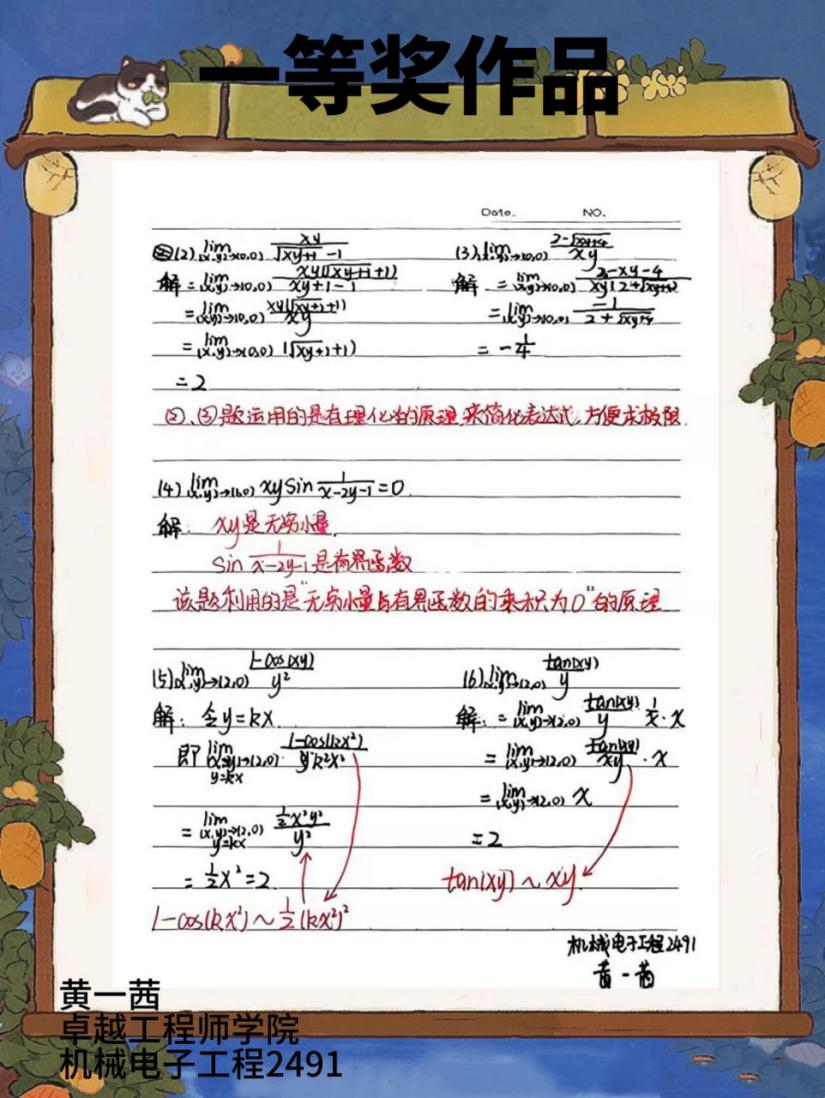 一等奖作品
Date. NO.
②(2) lim (x,y)→(0,0) xy/(√(xy+1) -1)
解 = lim (x,y)→(0,0) xy(√(xy+1)+1)/(xy+1-1)
= lim (x,y)→(0,0) xy(√(xy+1)+1)/xy
= lim (x,y)→(0,0) (√(xy+1)+1)
=2
(3) lim (x,y)→(0,0) (2-√(xy+4))/xy
解 = lim (x,y)→(0,0) -xy-4/xy(2+√(xy+4))
= lim (x,y)→(0,0) -1/(2+√(xy+4))
= -1/4
②、③题运用的是有理化的原理,来简化表达式,方便求极限.
(4) lim (x,y)→(1,0) xy sin 1/(x-2y-1) =0.
解: xy是无穷小量,
sin 1/(x-2y-1) 是有界函数
该题利用的是"无穷小量与有界函数的乘积为0"的原理
(5) lim (x,y)→(2,0) (1-cos(xy))/y²
解: 令y=kx
即 lim (x,y)→(2,0) y=kx (1-cos(kx²))/k²x²
= lim (x,y)→(2,0) y=kx ½x²y²/y²
= ½x² =2
1-cos(kx²)~½(kx²)²
(6) lim (x,y)→(2,0) tan(xy)/y
解: = lim (x,y)→(2,0) tan(xy)/y · 1/x · x
= lim (x,y)→(2,0) tan(xy)/xy · x
= lim (x,y)→(2,0) x
=2
tan(xy)~xy
机械电子工程2491
黄一茜
黄一茜
卓越工程师学院
机械电子工程2491